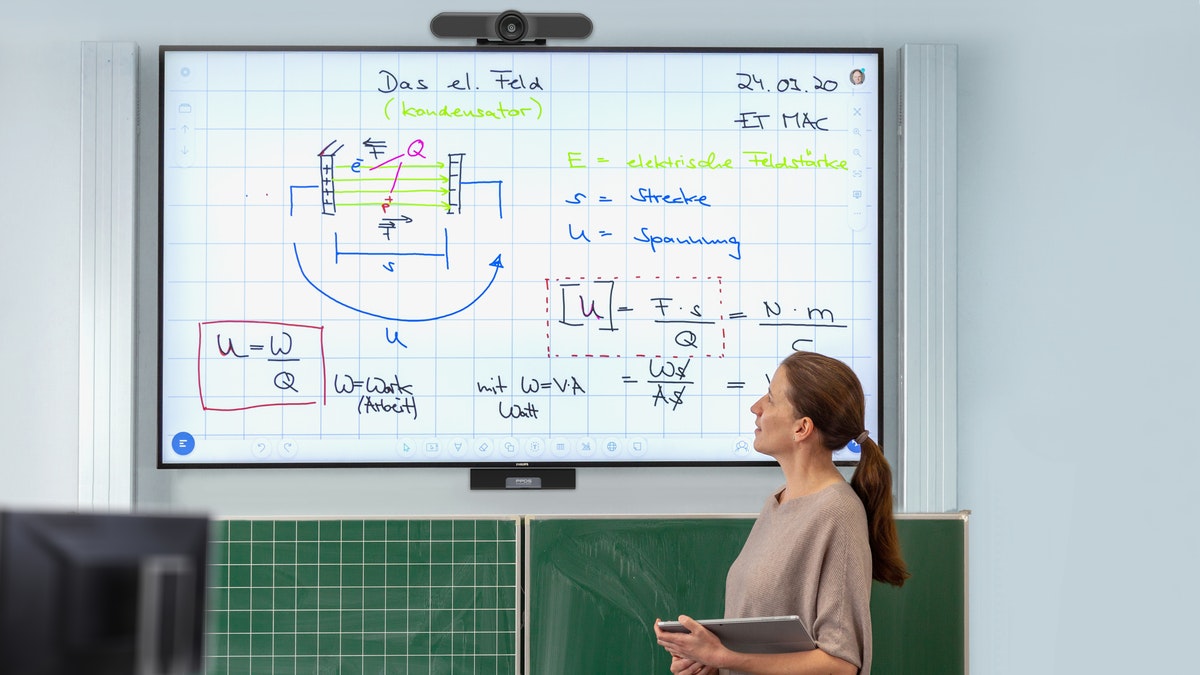 Das el. Feld
(Kondensator)
24.03.20
ET MAC
E = elektrische Feldstärke
s = Strecke
U = Spannung
F
Q
e⁻
p⁺
F
s
U
[U] = F · s / Q = N · m / C
U = W / Q
W = Work
(Arbeit)
mit W = V·A
Watt
= Ws / As =
PHILIPS
PPDS